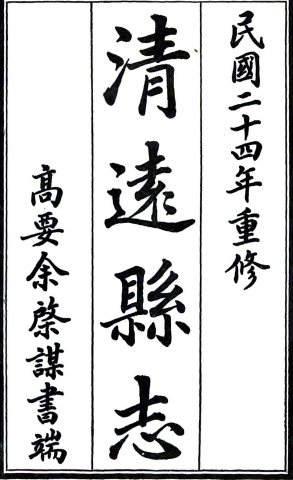 民國二十四年重修
清遠縣志
高要余棨謀書端